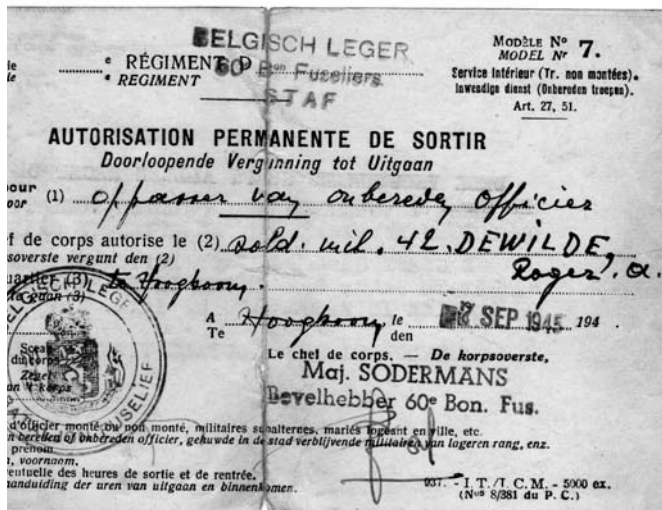 BELGISCH LEGER
60 Bon Fuseliers
STAF
e RÉGIMENT D
e REGIMENT
MODÈLE No 7.
MODEL Nr
Service Intérieur (Tr. non montées).
Inwendige dienst (Onbereden troepen).
Art. 27, 51.
AUTORISATION PERMANENTE DE SORTIR
Doorloopende Vergunning tot Uitgaan
pour (1) oppasser van onbereden officier
oor
ef de corps autorise le (2) sold. mil. 42. DEWILDE,
psoverste vergunt den (2)
Roger, a.
quartier (3) te Hoogboom.
te gaan (3)
A Hoogboom, le SEP 1945 194
Te den
Sceau
du corps
Zegel
van 't korps
BELGISCH LEGER
FUSELIER
Le chef de corps. — De korpsoverste,
Maj. SODERMANS
Bevelhebber 60e Bon. Fus.
d'officier monté ou non monté, militaires subalternes, mariés logeant en ville, etc.
n bereden of onbereden officier, gehuwde in de stad verblijvende militairen van lageren rang, enz.
prénom.
, voornaam.
entuelle des heures de sortie et de rentrée.
aanduiding der uren van uitgaan en binnenkomen.
937. - I.T./I.C.M. - 5000 ex.
(Nos 8/381 du P.C.)